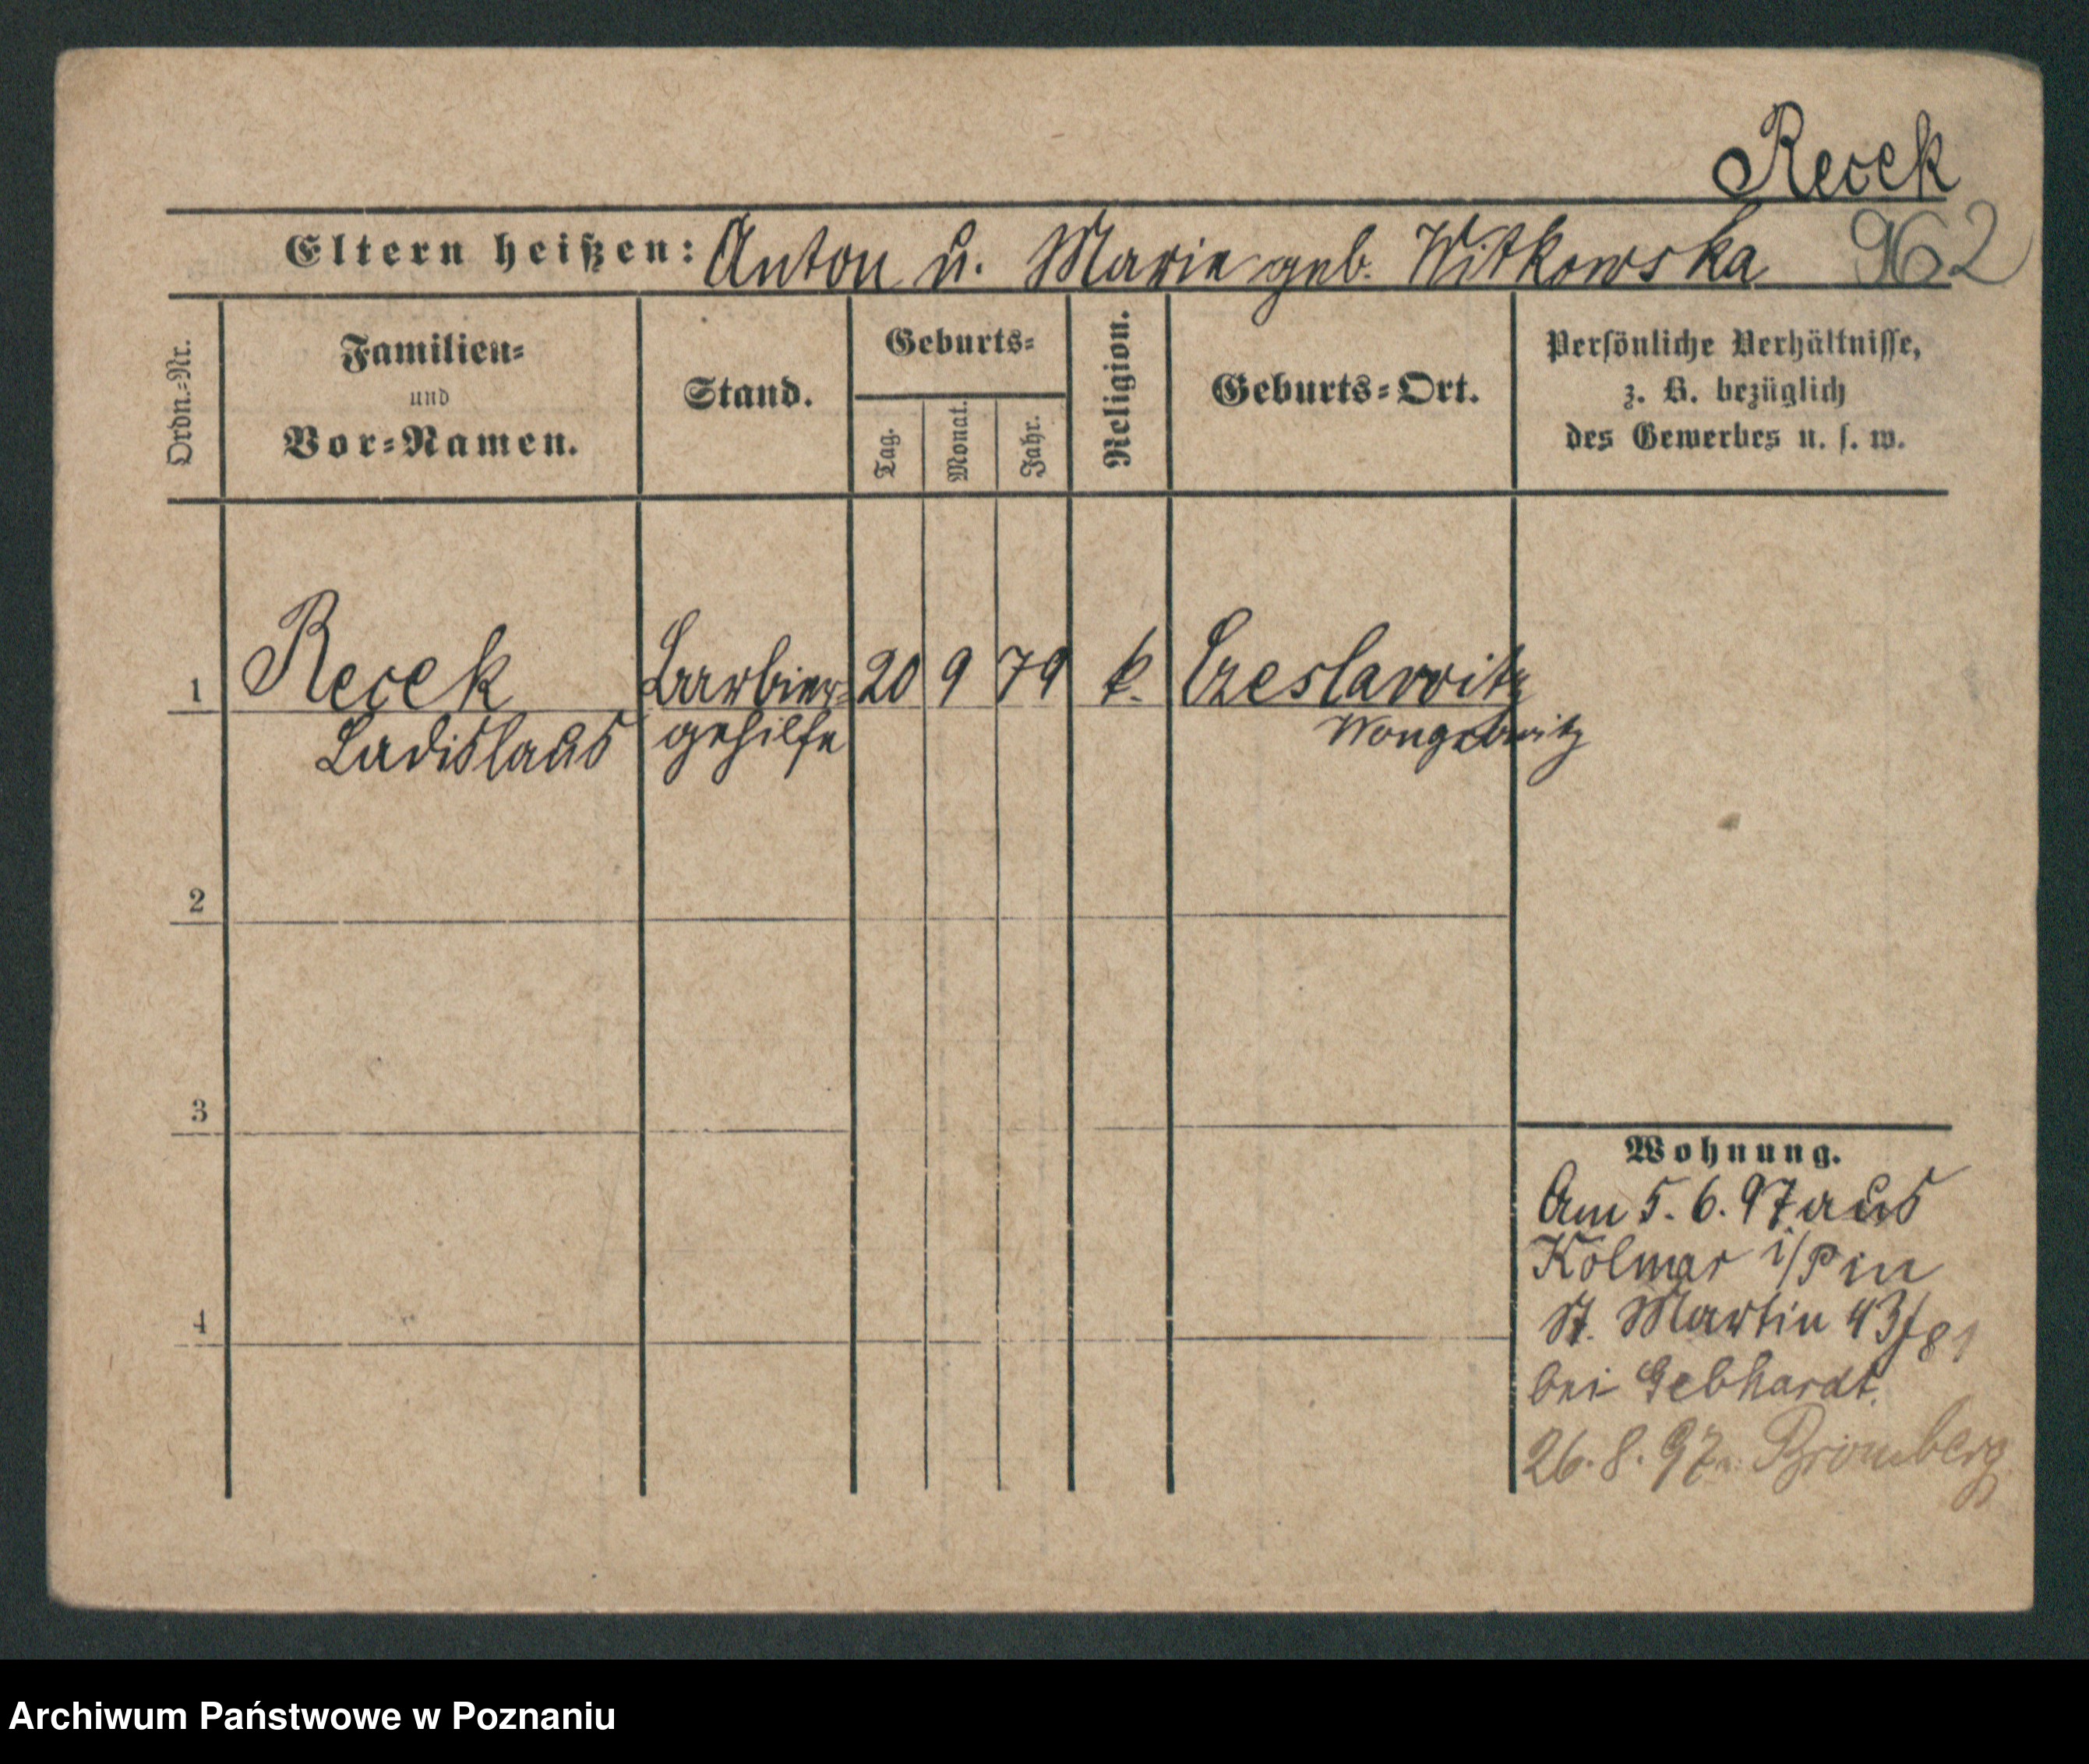 Recek
Eltern heißen: Anton u. Marie geb. Witkowska 962
Ordn.=Nr.
Familien=
und
Vor=Namen.
Stand.
Geburts=
Tag.
Monat.
Jahr.
Religion.
Geburts=Ort.
Persönliche Verhältnisse,
z. B. bezüglich
des Gewerbes u. s. w.
1 Recek Barbier= 20 9 79 k. Czeslawitz
Ladislaus gehilfe
2
3
4
Wohnung.
Am 5. 6. 97 aus
Kolmar i/P in
St. Martin 43/81
bei Gebhardt.
26. 8. 97 n. Bromberg
Archiwum Państwowe w Poznaniu